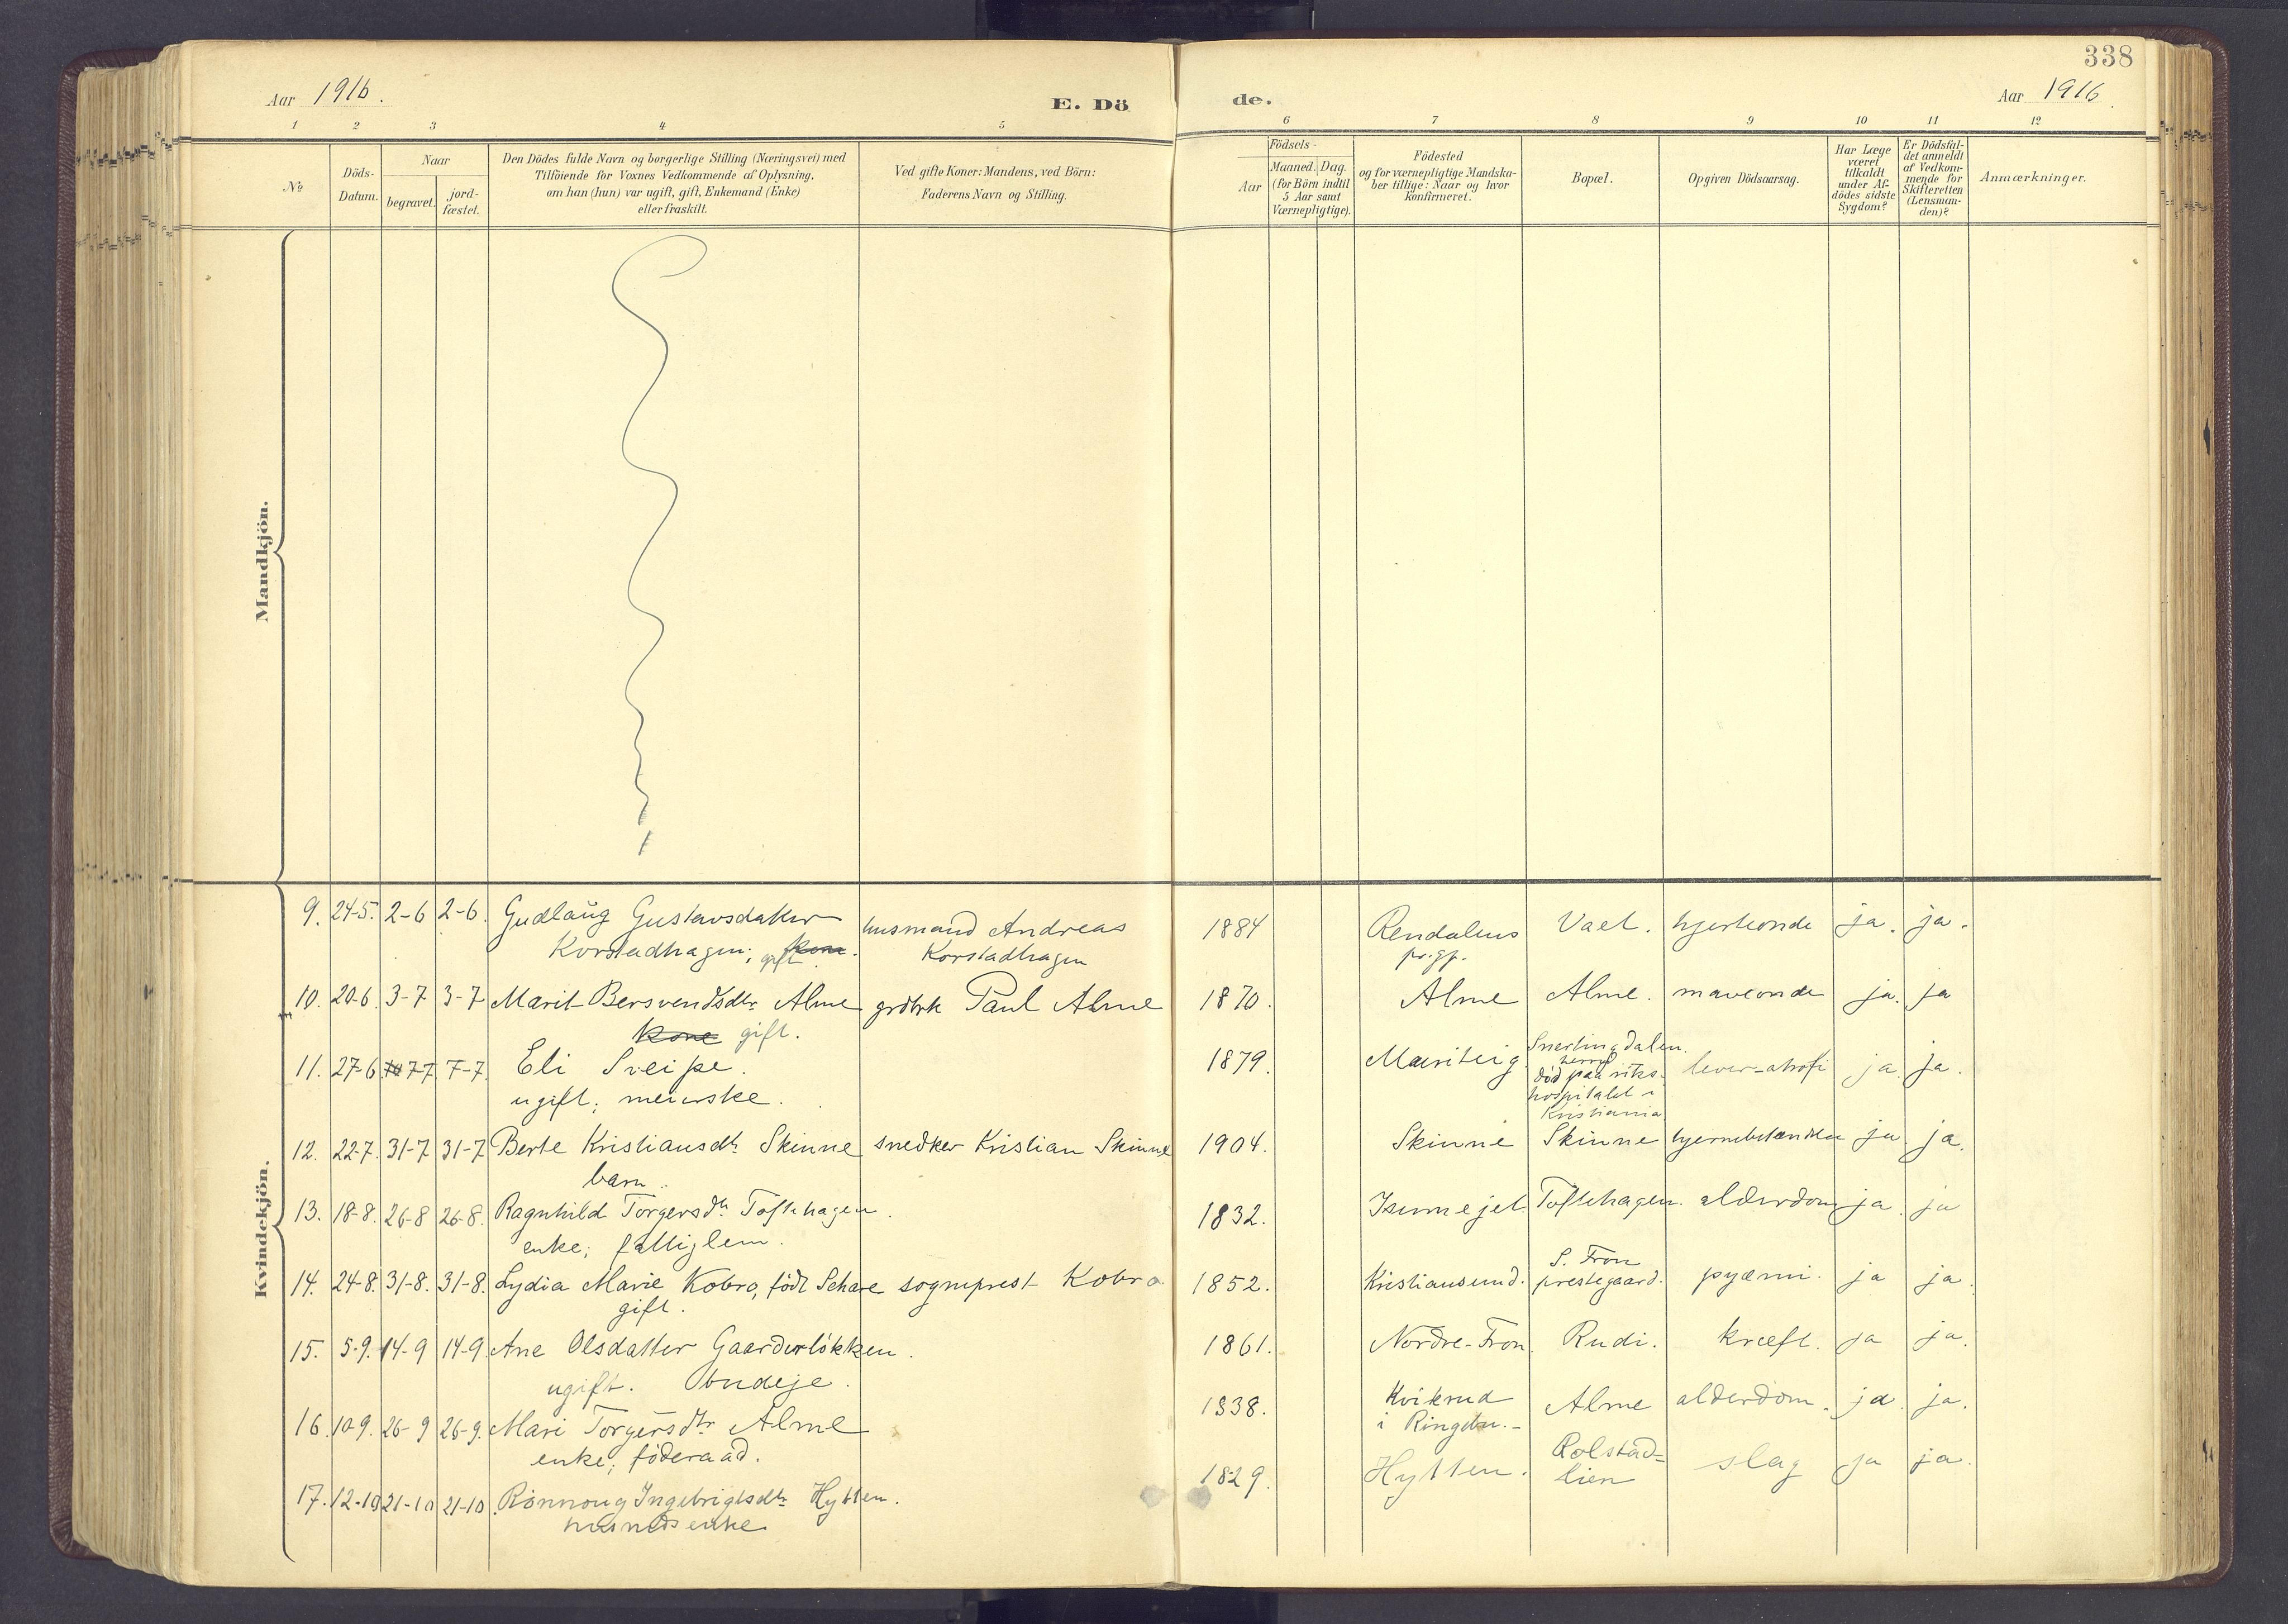 338
Aar 1916.
E. Dö
de.
Aar 1916.
1 2 3 4 5 6 7 8 9 10 11 12
No
Döds-
Datum.
Naar
begravet.
jord-
fæstet.
Den Dödes fulde Navn og borgerlige Stilling (Næringsvei) med
Tilföiende for Voxnes Vedkommende af Oplysning,
om han (hun) var ugift, gift, Enkemand (Enke)
eller fraskilt.
Ved gifte Koner: Mandens, ved Börn:
Faderens Navn og Stilling.
Födsels-
Aar
Maaned. Dag.
(for Börn indtil
5 Aar samt
Værnepligtige).
Födested
og for værnepligtige Mandska-
ber tillige: Naar og hvor
konfirmeret.
Bopæl.
Opgiven Dödsaarsag.
Har Læge
været
tilkaldt
under Af-
dödes sidste
Sygdom?
Er Dödsfal-
det anmeldt
af Vedkom-
mende for
Skifteretten
(Lensman-
den)?
Anmærkninger.
Mandkjön.
Kvindekjön.
9. 24-5. 2-6 2-6. Gudlaug Gustavsdatter husmand Andreas 1884 Rendalens Vael. hjerteonde ja. ja.
Korstadhagen; gift kone. Korstadhagen pr.gj.
10. 20-6. 3-7 3-7 Marit Bersvendsdtr Alme grdbrk Paul Alme 1870. Alme Alme. maveonde ja. ja
kone gift.
11. 27-6 7-7 7-7. Eli Sveipe. 1879. Snertingdalen. lever-atrofi ja. ja.
ugift; meierske. død paa riks-
hospitalet i
Kristiania
12. 22-7. 31-7 31-7 Berte Kristiansdtr Skinne snedker Kristian Skinne 1904. Skinne Skinne ja ja.
barn.
13. 18-8. 26-8 26-8. Ragnhild Torgersdtr Toftehagen. 1832. Toftehagen. alderdom ja. ja
enke; fattiglem.
14. 24-8. 31-8. 31-8. Lydia Marie Kobro, født Schare sogneprest Kobro 1852. Kristiansund. S. Fron
prestegaard. pyæmi. ja ja.
gift.
15. 5-9. 14-9 14-9. Ane Olsdatter Gaarderløkken. 1861. Nordre-Fron. Rudi. kræft. ja ja.
ugift. budeje.
16. 10-9. 26-9 26-9. Mari Torgersdtr Alme 1838. Kvikrud Alme alderdom. ja ja.
enke; føderaad. i Ringebu.-
17. 12-10 21-10 21-10. Rønnoug Ingebrigtsdtr Hytten. 1829. Hytten. Rolstad- slag ja ja.
husmdsenke lien